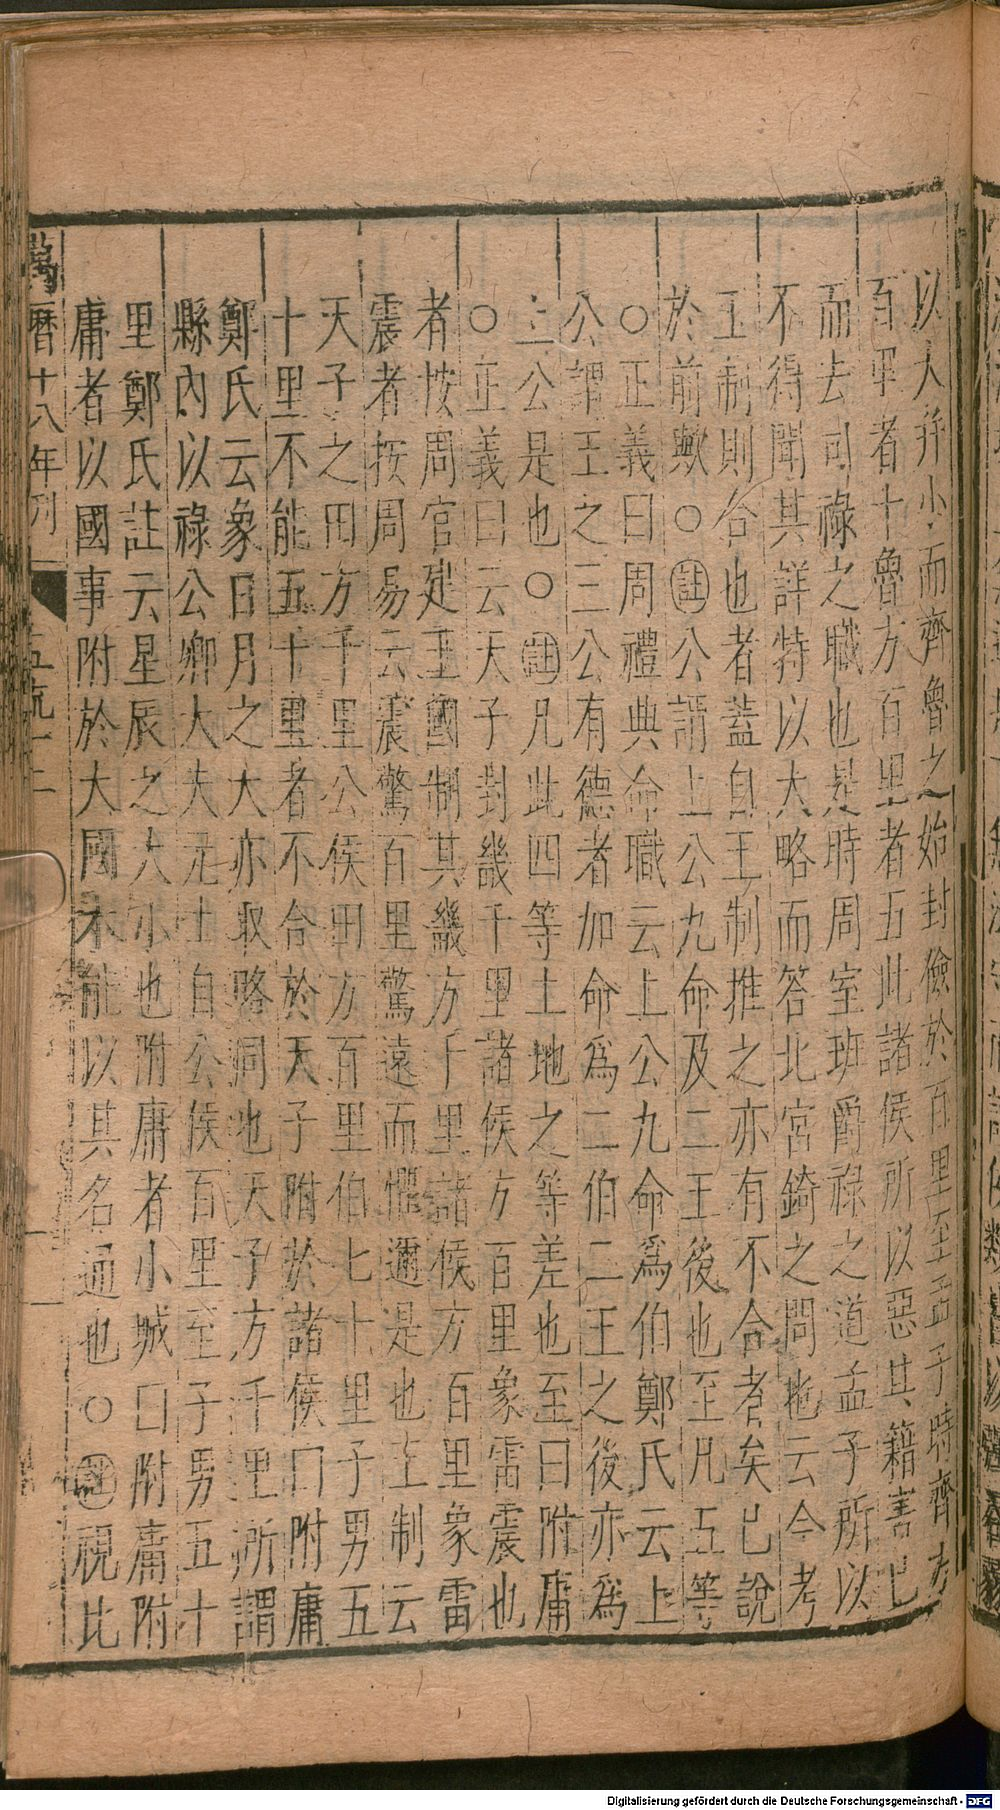 以大并小而齊魯之始封儉於百里至孟子時齊方
百里者十魯方百里者五此諸侯所以惡其籍害己
而去司祿之職也是時周室班爵祿之道孟子所以
不得聞其詳特以大略而答北宮錡之問也云今考
王制則合也者蓋自王制推之亦有不合者矣已說
於前歟○註公謂上公九命及二王後也至凡五等
○正義曰周禮典命職云上公九命爲伯鄭氏云上
公謂王之三公有德者加命爲二伯二王之後亦爲
上公是也○註凡此四等土地之等差也至曰附庸
○正義曰云天子封畿千里諸侯方百里象雷震也
者按周官建王國制其畿方千里諸侯方百里象雷
震者按周易云震驚百里驚遠而懼邇是也王制云
天子之田方千里公侯田方百里伯七十里子男五
十里不能五十里者不合於天子附於諸侯曰附庸
鄭氏云象日月之大亦取晷同也天子方千里所謂
縣內以祿公卿大夫元士自公侯百里至子男五十
里鄭氏註云星辰之大小也附庸者小城曰附庸附
庸者以國事附於大國不能以其名通也○註視比
萬曆十八年刊
五疏十上
Digitalisierung gefördert durch die Deutsche Forschungsgemeinschaft - DFG